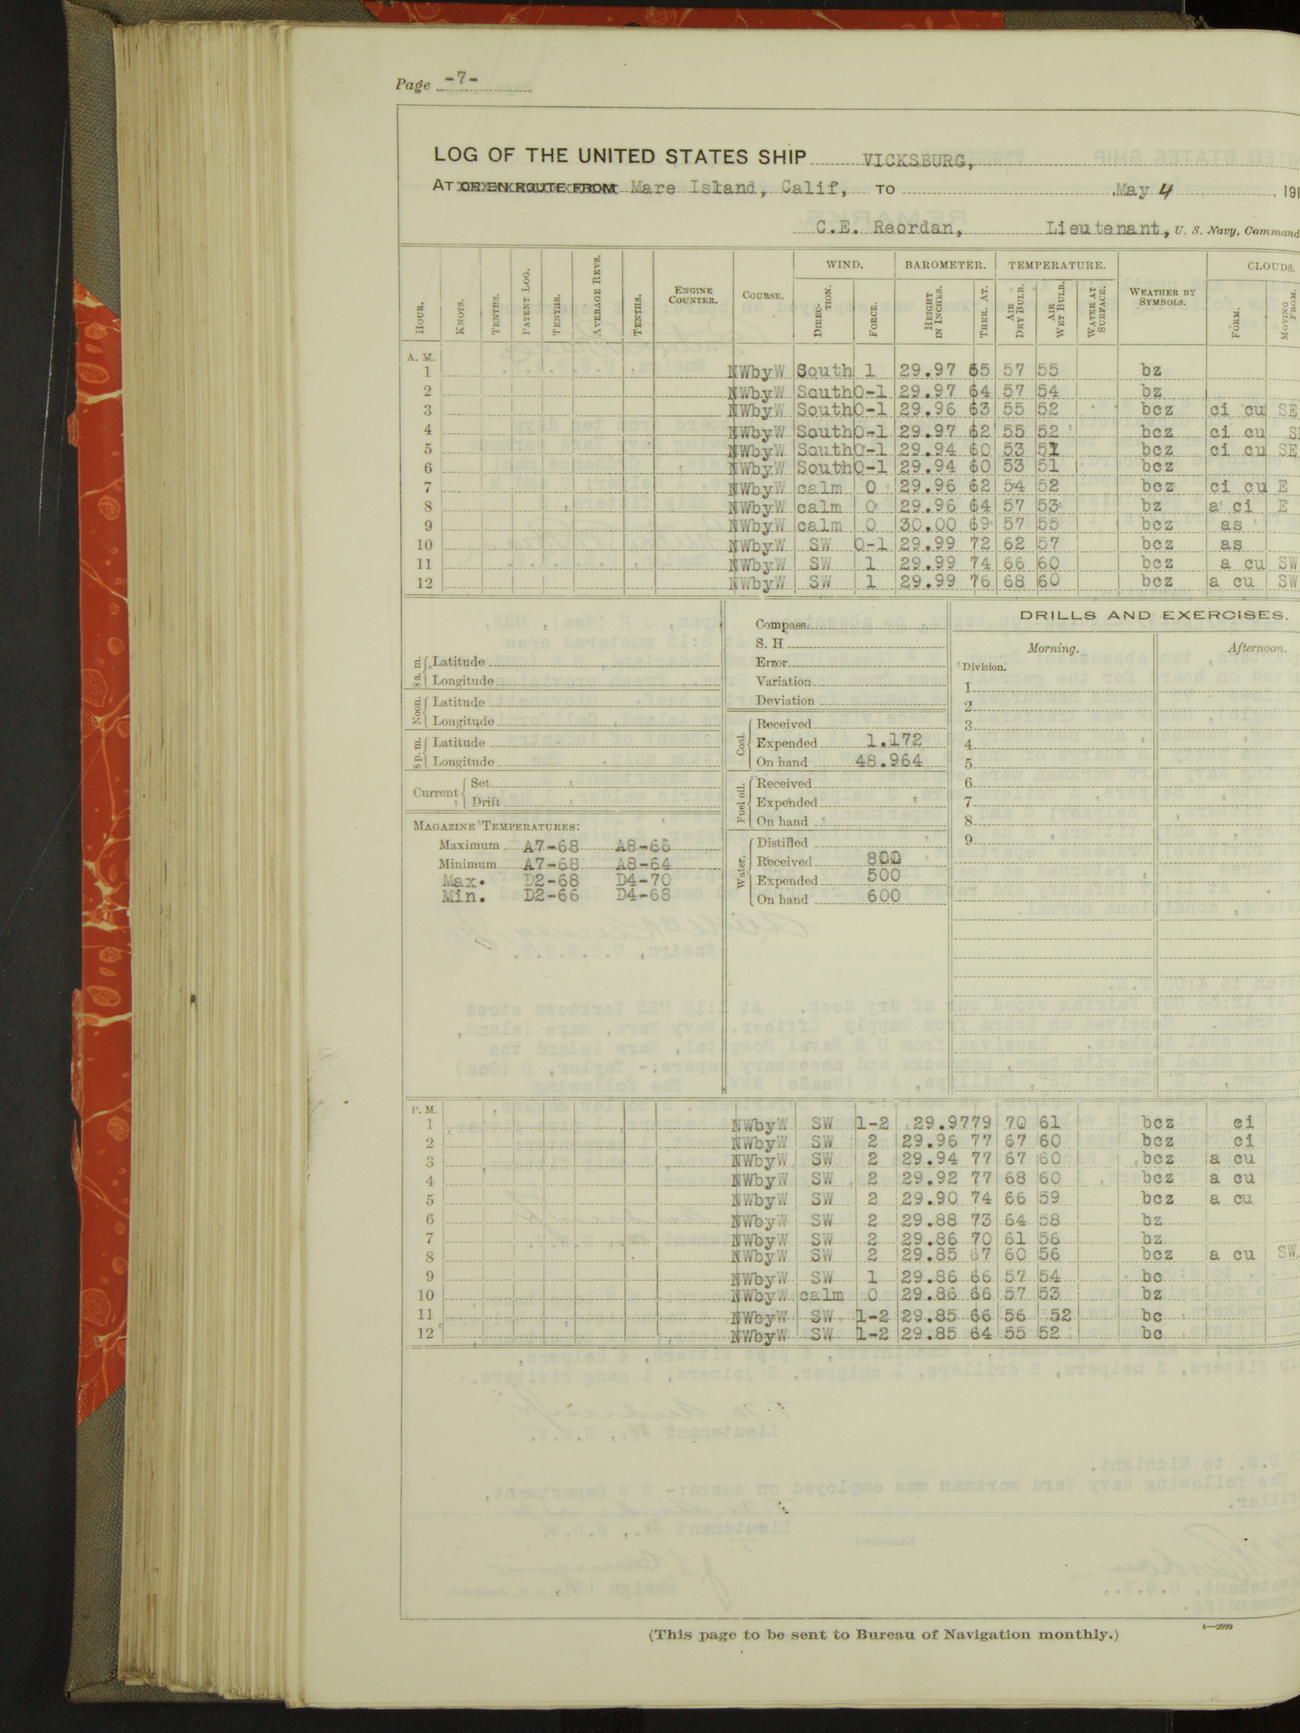 Page -7-
LOG OF THE UNITED STATES SHIP VICKSBURG,
AT OR EN ROUTE FROM Mare Island, Calif, TO May 4 191
C.E. Reordan, Lieutenant, U. S. Navy, Command
HOUR. KNOTS. TENTHS. PATENT LOG. TENTHS. AVERAGE REVS. TENTHS. ENGINE COUNTER. COURSE. WIND. DIRECTION. FORCE. BAROMETER. HEIGHT IN INCHES. THER. AT. TEMPERATURE. AIR DRY BULB. AIR WET BULB. WATER AT SURFACE. WEATHER BY SYMBOLS. CLOUDS. FORM. MOVING FROM.
A. M.
1 NWbyW South 1 29.97 65 57 55 bz
2 NWbyW South 0-1 29.97 64 57 54 bz
3 NWbyW South 0-1 29.96 63 55 52 bcz ci cu SE
4 NWbyW South 0-1 29.97 62 55 52 bcz ci cu S
5 NWbyW South 0-1 29.94 60 53 51 bcz ci cu SE
6 NWbyW South 0-1 29.94 60 53 51 bcz
7 NWbyW calm 0 29.96 62 54 52 bcz ci cu E
8 NWbyW calm 0 29.96 64 57 53 bz a ci E
9 NWbyW calm 0 30.00 69 57 55 bcz as
10 NWbyW SW 0-1 29.99 72 62 57 bcz as
11 NWbyW SW 1 29.99 74 66 60 bcz a cu SW
12 NWbyW SW 1 29.99 76 68 60 bcz a cu SW
8 a. m. Latitude
Longitude
Noon. Latitude
Longitude
8 p. m. Latitude
Longitude
Current Set
Drift
MAGAZINE TEMPERATURES:
Maximum A7-68 A8-66
Minimum A7-68 A8-64
Max. D2-68 D4-70
Min. D2-66 D4-68
Compass
S. H
Error
Variation
Deviation
Coal. Received
Expended 1.172
On hand 48.964
Fuel oil. Received
Expended
On hand
Water. Distilled
Received 800
Expended 500
On hand 600
DRILLS AND EXERCISES.
Morning. Afternoon.
Division.
1
2
3
4
5
6
7
8
9
P. M.
1 NWbyW SW 1-2 29.97 79 70 61 bcz ci
2 NWbyW SW 2 29.96 77 67 60 bcz ci
3 NWbyW SW 2 29.94 77 67 60 bcz a cu
4 NWbyW SW 2 29.92 77 68 60 bcz a cu
5 NWbyW SW 2 29.90 74 66 59 bcz a cu
6 NWbyW SW 2 29.88 73 64 58 bz
7 NWbyW SW 2 29.86 70 61 56 bz
8 NWbyW SW 2 29.85 67 60 56 bcz a cu SW.
9 NWbyW SW 1 29.86 66 57 54 bc
10 NWbyW calm 0 29.86 66 57 53 bz
11 NWbyW SW 1-2 29.85 66 56 52 bc
12 NWbyW SW 1-2 29.85 64 55 52 bc
(This page to be sent to Bureau of Navigation monthly.)
4—2599